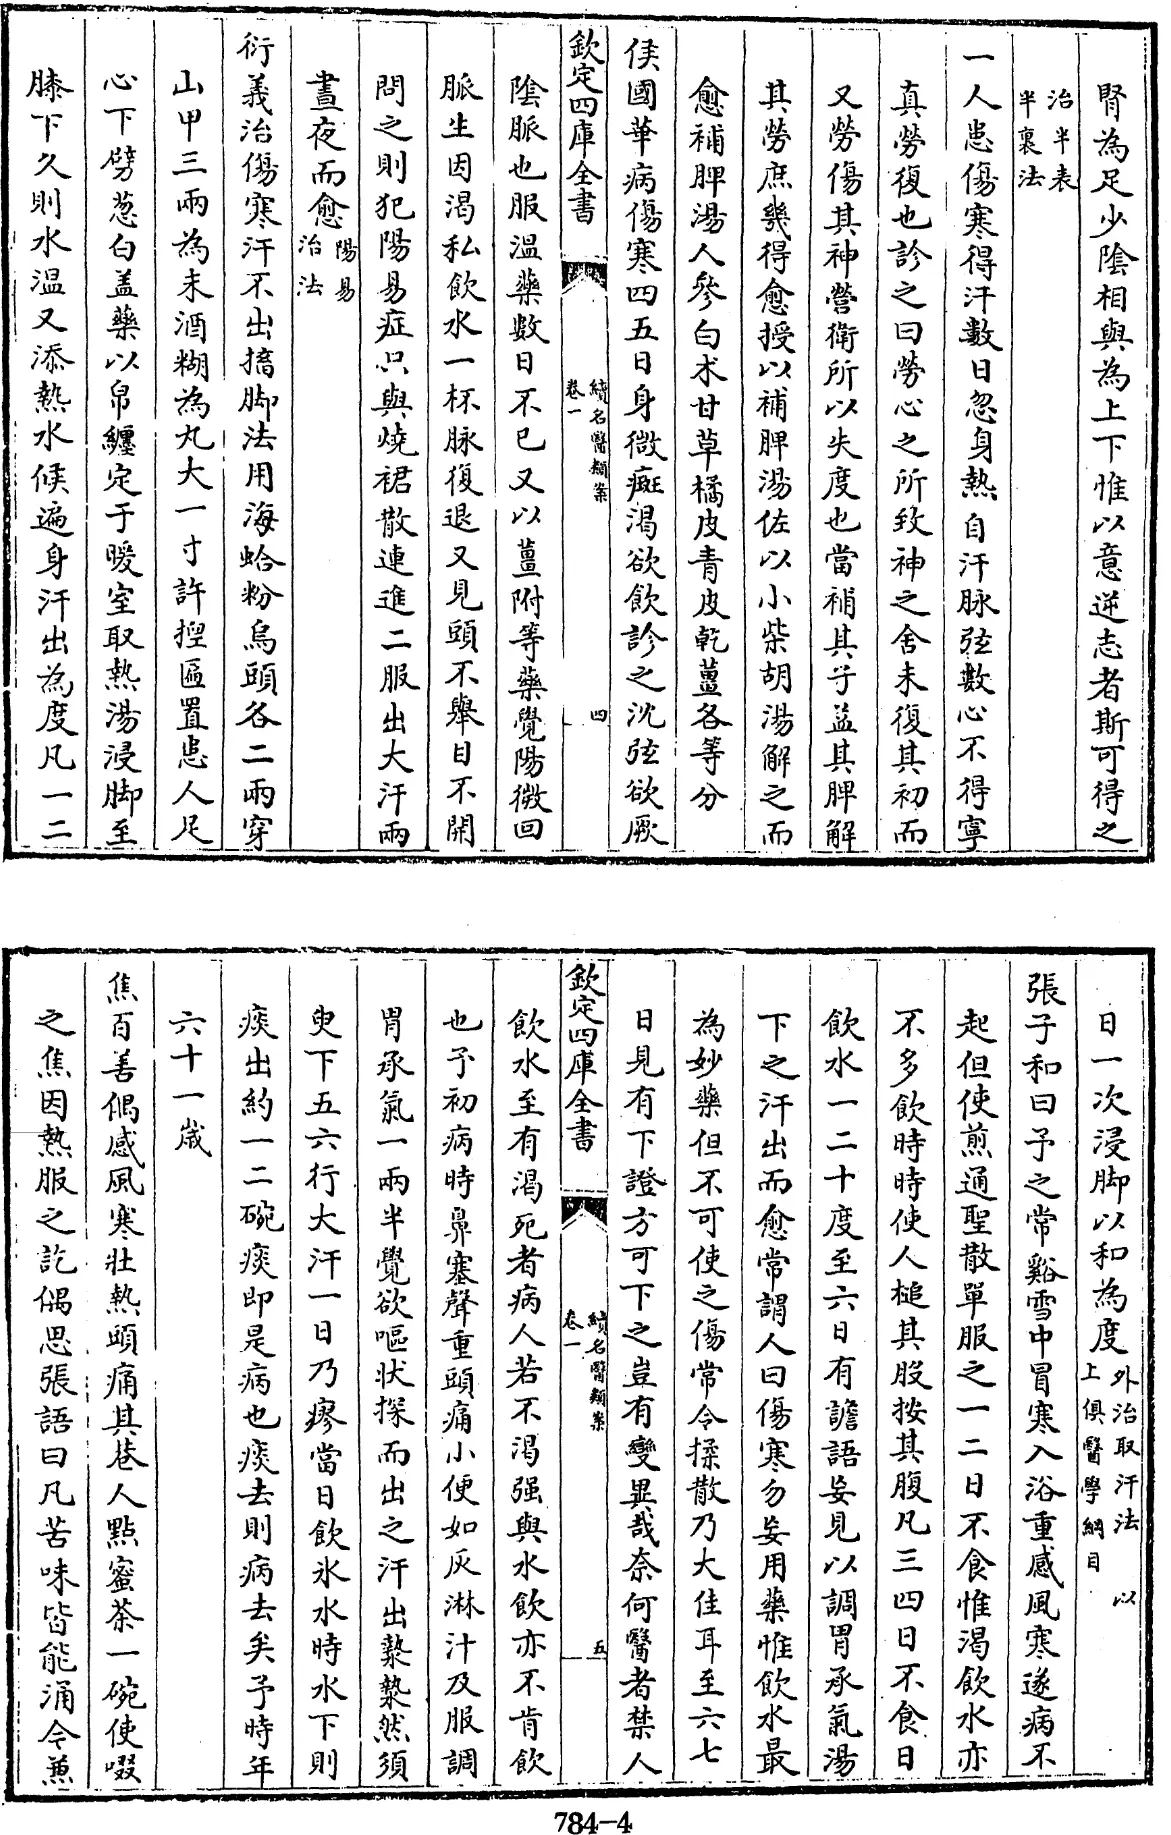 腎為足少陰相與為上下惟以意逆志者斯可得之
治半表
半裏法
一人患傷寒得汗數日忽身熱自汗脉弦數心不得寧
真勞復也診之曰勞心之所致神之舍未復其初而
又勞傷其神營衛所以失度也當補其子益其脾解
其勞庶幾得愈授以補脾湯佐以小柴胡湯解之而
愈補脾湯人參白朮甘草橘皮青皮乾薑各等分
侯國華病傷寒四五日身微斑渴欲飲診之沈弦欲厥
欽定四庫全書
續名醫類案
卷一
四
陰脈也服溫藥數日不已又以薑附等藥覺陽微回
脈生因渴私飲水一杯脉復退又見頭不舉目不開
問之則犯陽易症只與燒裙散連進二服出大汗兩
晝夜而愈陽易
治法
衍義治傷寒汗不出搐脚法用海蛤粉烏頭各二兩穿
山甲三兩為末酒糊為丸大一寸許揑匾置患人足
心下劈葱白盖藥以帛纏定于暖室取熱湯浸脚至
膝下久則水溫又添熱水候遍身汗出為度凡一二
日一次浸脚以和為度外治取汗法 以
上俱醫學綱目
張子和曰予之常谿雪中冒寒入浴重感風寒遂病不
起但使煎通聖散單服之一二日不食惟渴飲水亦
不多飲時時使人槌其股按其腹凡三四日不食日
飲水一二十度至六日有譫語妄見以調胃承氣湯
下之汗出而愈常謂人曰傷寒勿妄用藥惟飲水最
為妙藥但不可使之傷常令揉散乃大佳耳至六七
日見有下證方可下之豈有變異哉奈何醫者禁人
欽定四庫全書
續名醫類案
卷一
五
飲水至有渴死者病人若不渴强與水飲亦不肯飲
也予初病時鼻塞聲重頭痛小便如灰淋汁及服調
胃承氣一兩半覺欲嘔狀探而出之汗出漐漐然須
臾下五六行大汗一日乃瘳當日飲氷水時水下則
痰出約一二碗痰即是病也痰去則病去矣予時年
六十一歲
焦百善偶感風寒壯熱頭痛其巷人點蜜茶一碗使啜
之焦因熱服之訖偶思張語曰凡苦味皆能涌今兼
784-4